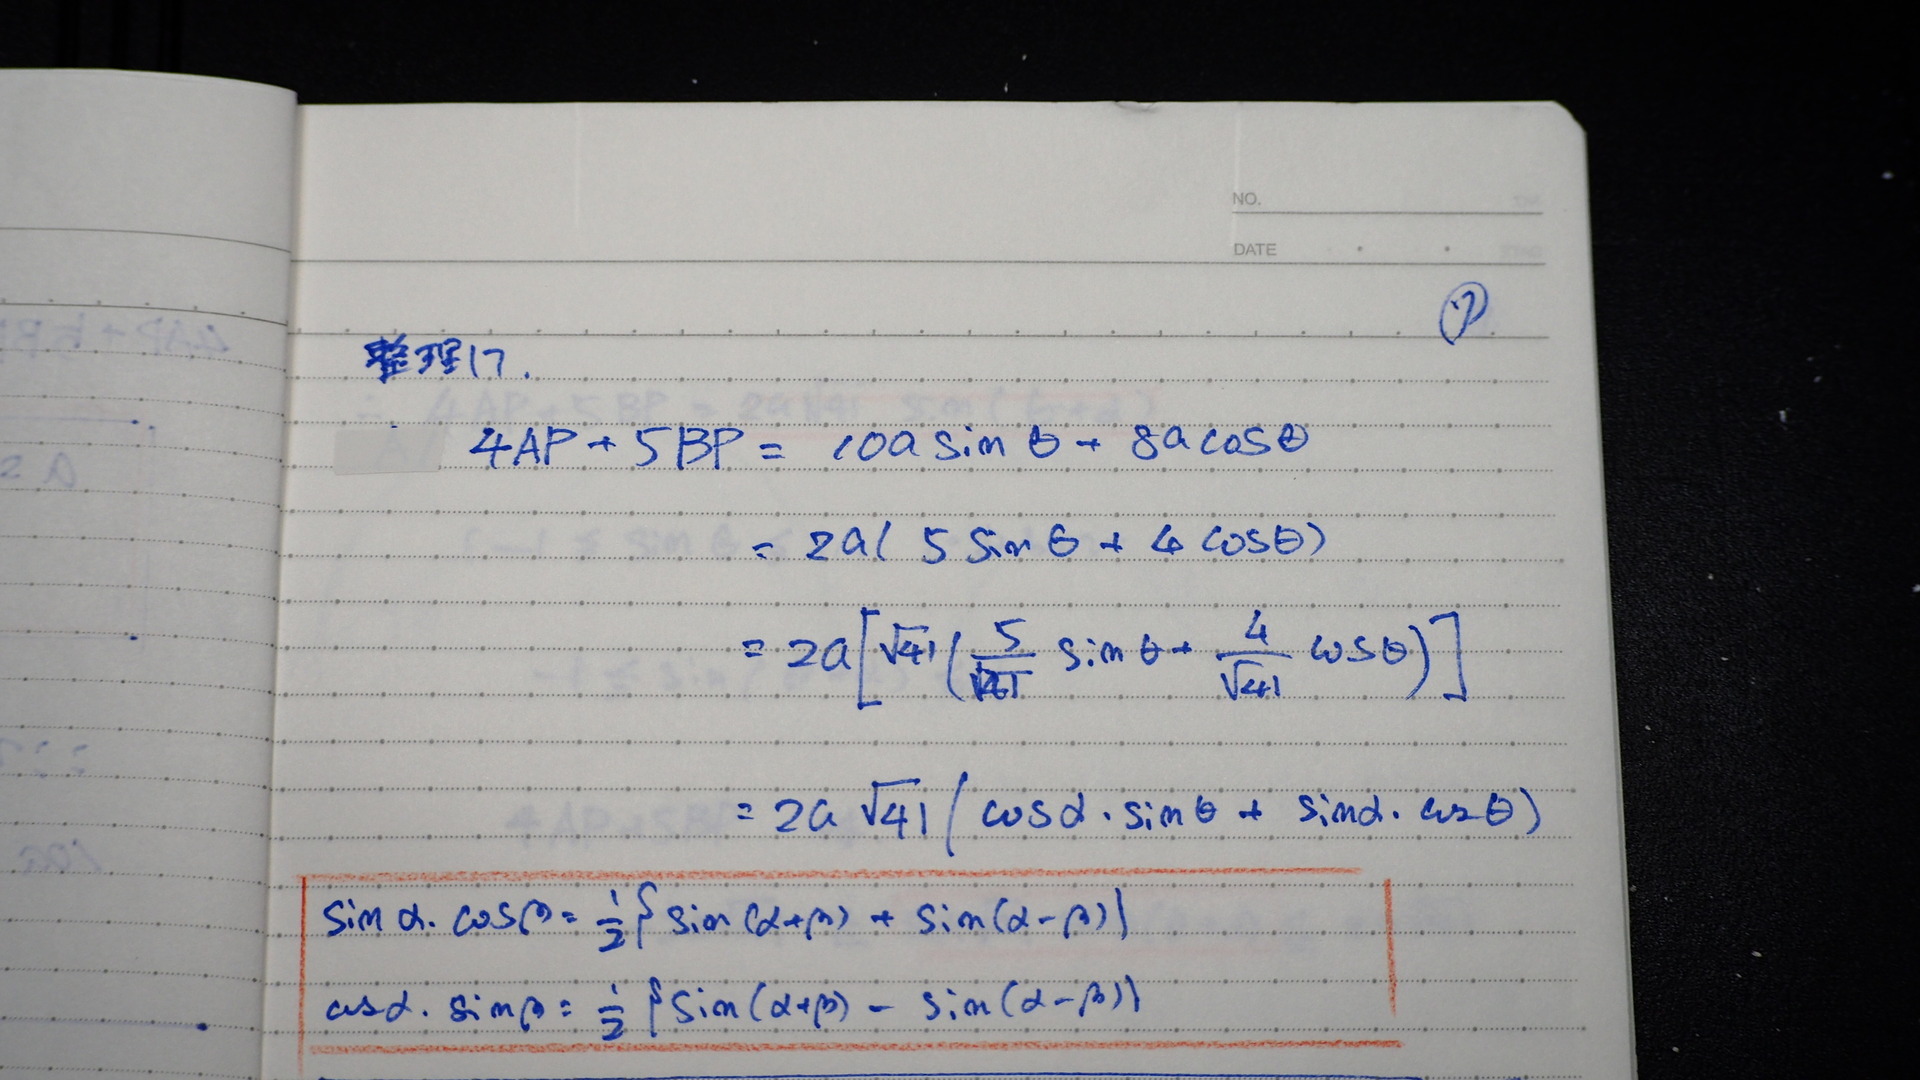 NO.
DATE
整理17.
4AP + 5BP = 10a sin θ + 8a cos θ
= 2a( 5 sin θ + 4 cos θ)
= 2a[√41(5/√41 sin θ + 4/√41 cos θ)]
= 2a √41 ( cos α · sin θ + sin α · cos θ)
sin α · cos β = 1/2 { sin (α+β) + sin(α-β)}
cos α · sin β = 1/2 { sin (α+β) - sin (α-β)}